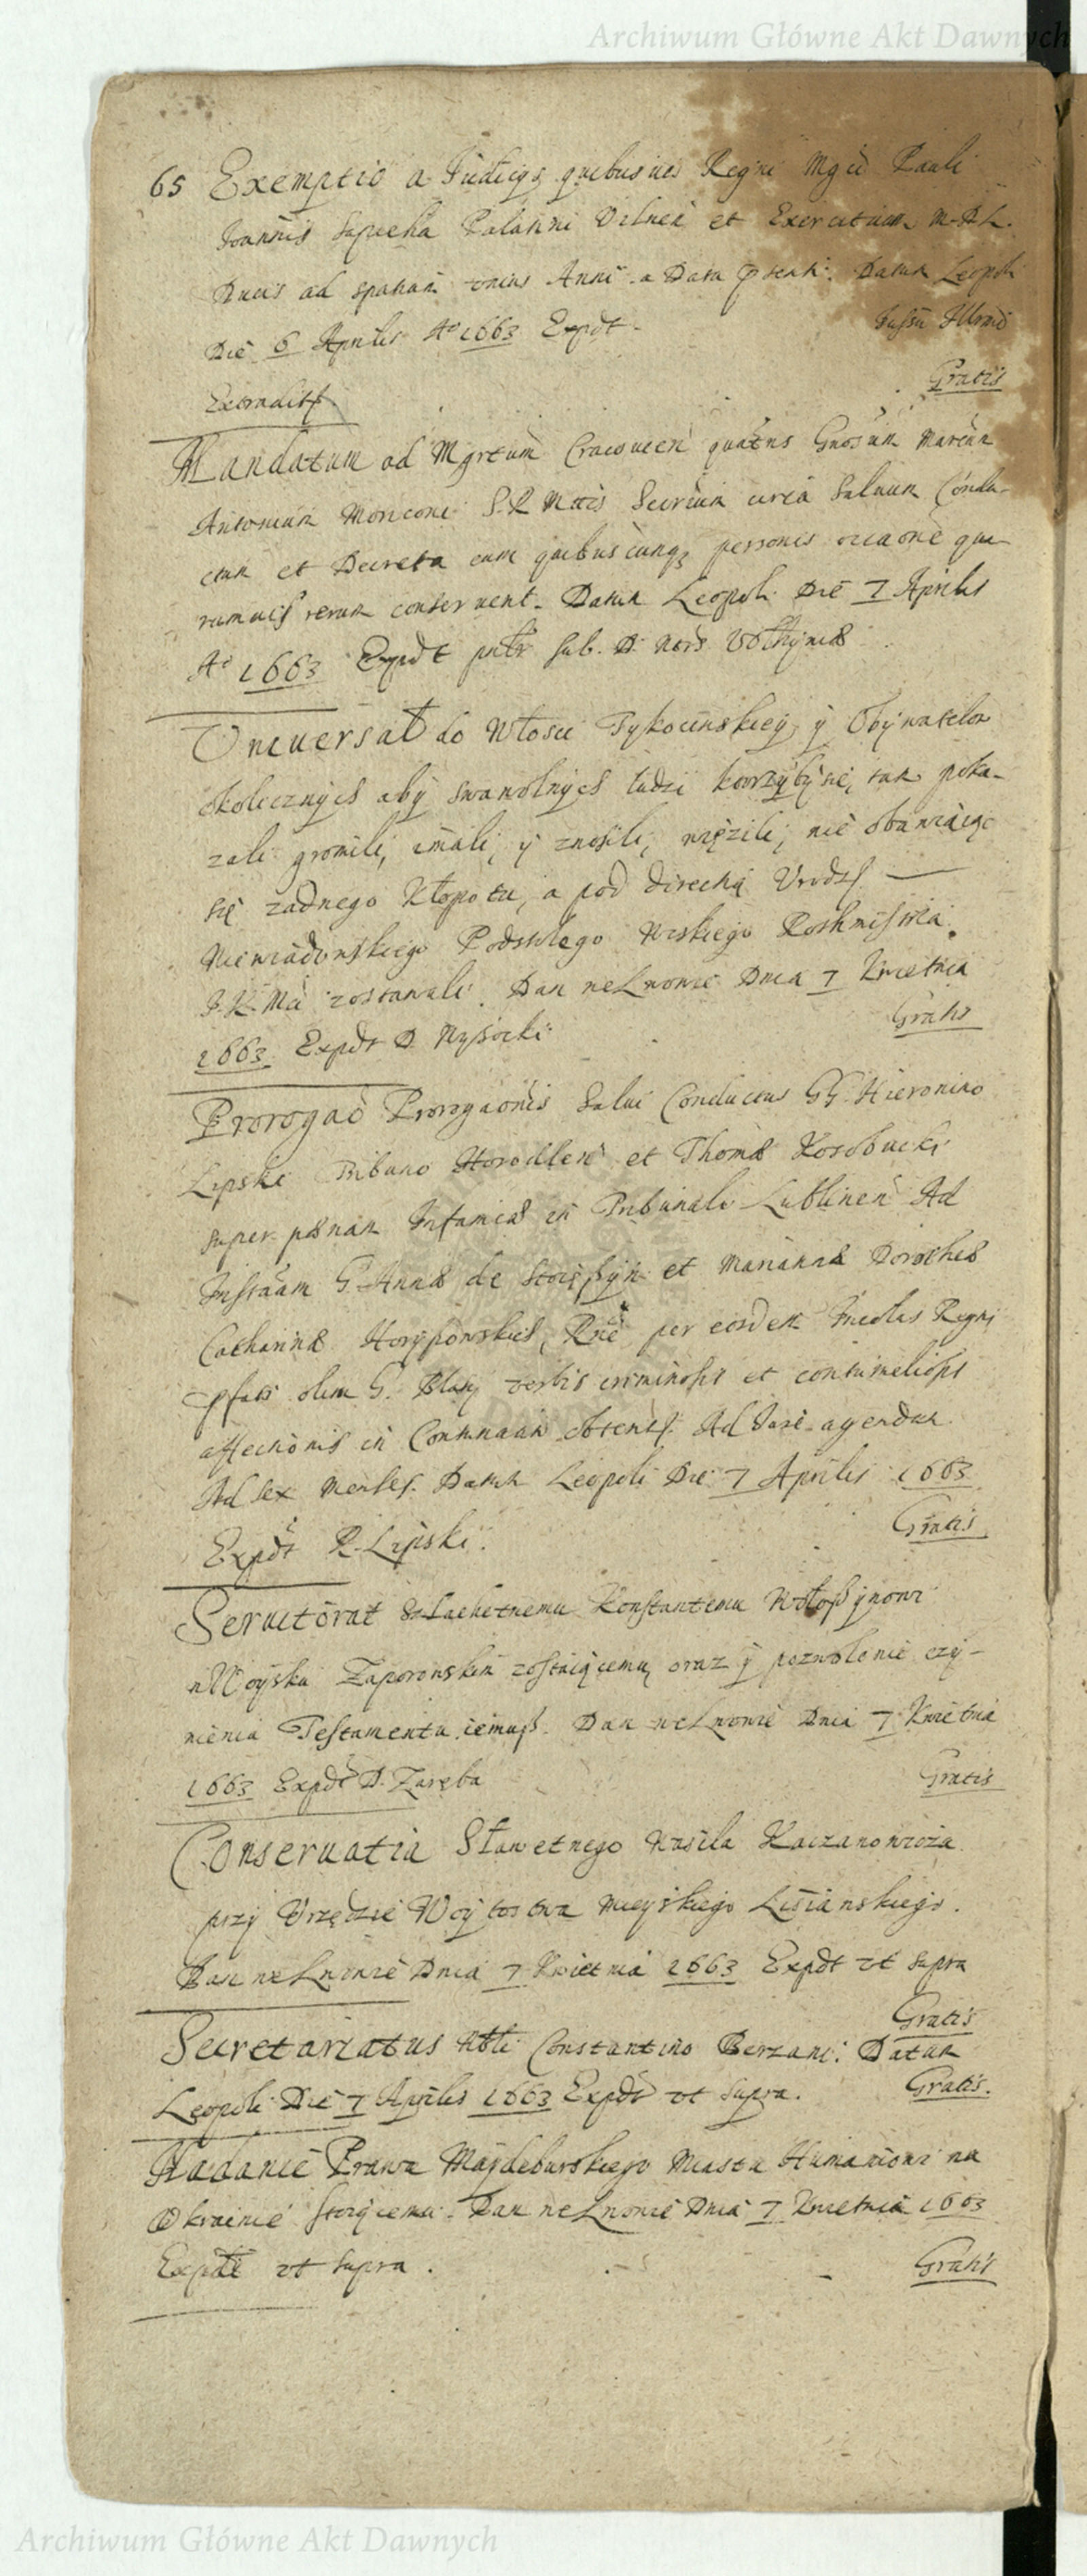 Archiwum Główne Akt Dawnych
65 Exemptio a Iudicys quibusvis Regni Mgci Pauli
Joannis Sapieha Palatini Vilnen et Exercituum M. D. L.
Ducis ad spatium unius Anni a Data Datum Leopoli
Die 6 Aprilis Ao 1663 Expdt.
Gratis
Mandatum ad Mgrtum Cracovien quatns Gnosum
Antonium Moriconi S. R. Mttis circa Saluum Condu-
ctum et Decreta cum quibuscunq personis qua-
rumuis rerum conseruent. Datum Leopoli Die 7 Aprilis
Ao 1663 Expdt sub. D. Volhyniæ
Uniuersał do Włosci Tykocinskiey y Obywatelow
okolicznych aby swawolnych ludzi ktorzyby się tam poka-
zali gromili, imali, y znosili, więzili, nie obawiaiąc
się zadnego Kłopotu, a pod direkcią
Niewiadomskiego Podstolego Wiskiego
J. K. Mci zostawali. Dan we Lwowie Dnia 7 Kwietnia
Gratis
1663 Expdt D. Wysocki
Prorogao Prorogaonis Salui Conductus GG. Hieronimo
Lipski Tribuno Horodlen et Thomæ Kosobucki
super pænam Infamiæ in Tribunali Lublinen Ad
Instaam G. Annæ de et Mariannæ Dorotheæ
Catharinæ per eosdem Incolas Regni
olim G. verbis criminosis et contumeliosis
affectionis in Contumaciam obtent. Ad agendum
Ad sex Menses. Datum Leopoli Die 7 Aprilis 1663
Gratis
Expdt R. Lipski.
Seruitorat Szlachetnemu Konstantemu Wołoszynowi
w Woysku Zaporowskim zostaiącemu, oraz y pozwolenie czy-
nienia Testamentu iemuż. Dan we Lwowie Dnia 7 Kwietnia
1663 Expdt D. Zaręba
Gratis
Conseruatia Sławetnego Wasila Kaczanowicza
przy Urzędzie Woytostwa Mieyskiego Lisianskiego.
Dan we Lwowie Dnia 7 Kwietnia 1663 Expdt ut supra
Gratis
Secretariatus Nbli Constantino Berzani. Datum
Leopoli Die 7 Aprilis 1663 Expdt ut supra.
Gratis.
Nadanie Prawa Maydeburskiego Miastu Humaniowi na
Okrainie stoiącemu. Dan we Lwowie Dnia 7 Kwietnia 1663
Expdt ut supra.
Gratis
Archiwum Główne Akt Dawnych